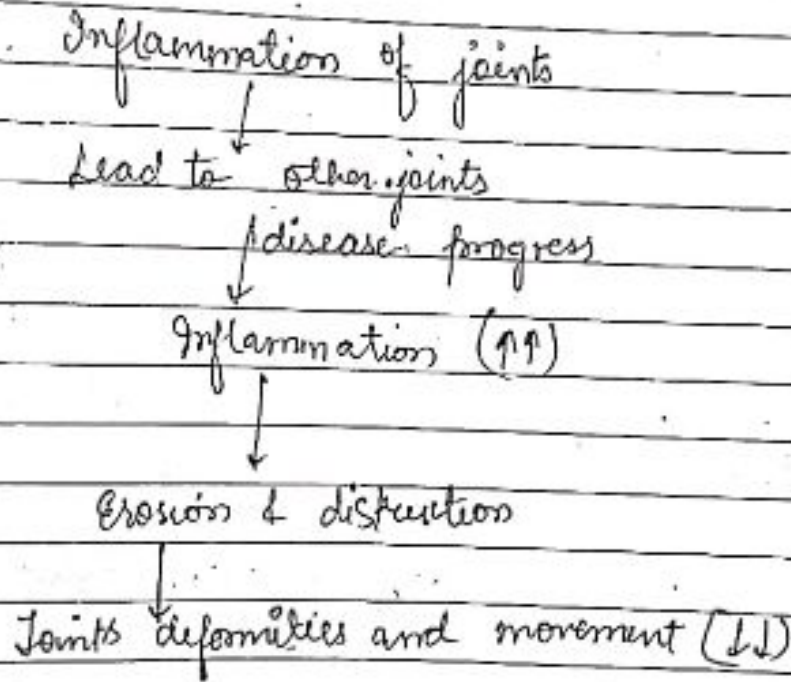 Inflammation of joints
↓
Lead to other joints
↓ disease progress
Inflammation (↑↑)
↓
Erosion & distruction
↓
Joints deformities and movement (↓↓)